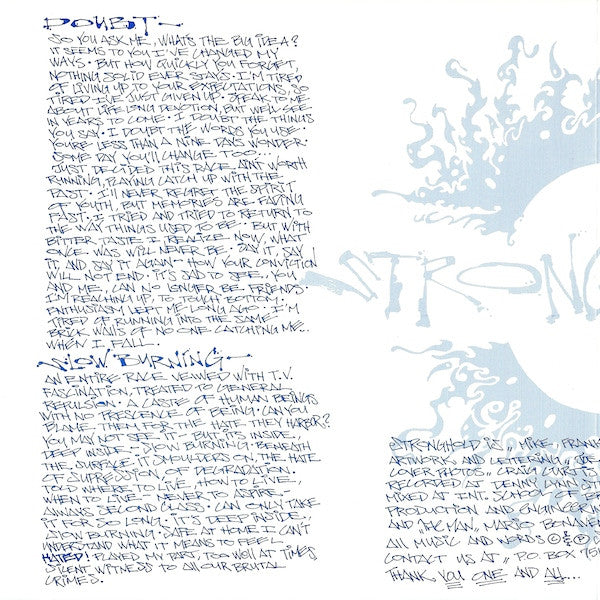 DOUBT-
SO YOU ASK ME, WHAT'S THE BIG IDEA?
IT SEEMS TO YOU I'VE CHANGED MY
WAYS · BUT HOW QUICKLY YOU FORGET,
NOTHING SOLID EVER STAYS · I'M TIRED
OF LIVING UP TO YOUR EXPECTATIONS, SO
TIRED I'VE JUST GIVEN UP · SPEAK TO ME
ABOUT LIFE LONG DEVOTION, BUT WE'LL SEE
IN YEARS TO COME · I DOUBT THE THINGS
YOU SAY · I DOUBT THE WORDS YOU USE ·
YOU'RE LESS THAN A NINE DAYS WONDER ·
SOME DAY YOU'LL CHANGE TOO...
JUST DECIDED THIS RACE AIN'T WORTH
RUNNING, PLAYING CATCH UP WITH THE
PAST · I'LL NEVER REGRET THE SPIRIT
OF YOUTH, BUT MEMORIES ARE FADING
FAST · I TRIED AND TRIED TO RETURN TO
THE WAY THINGS USED TO BE · BUT WITH
BITTER TASTE I REALIZE NOW, WHAT
ONCE WAS WILL NEVER BE · SAY IT, SAY
IT, AND SAY IT AGAIN - HOW YOUR CONVICTION
WILL NOT END · IT'S SAD TO SEE, YOU
AND ME, CAN NO LONGER BE FRIENDS ·
I'M REACHING UP, TO TOUCH BOTTOM ·
ENTHUSIASM LEFT ME LONG AGO · I'M
TIRED OF RUNNING INTO THE SAME
BRICK WALLS OF NO ONE CATCHING ME...
WHEN I FALL ·
SLOW BURNING-
AN ENTIRE RACE VIEWED WITH T.V.
FASCINATION, TREATED TO GENERAL
REPULSION · A CASTE OF HUMAN BEINGS
WITH NO PRESCENCE OF BEING · CAN YOU
BLAME THEM FOR THE HATE THEY HARBOR?
YOU MAY NOT SEE IT - BUT IT'S INSIDE,
DEEP INSIDE - SLOW BURNING · BENEATH
THE SURFACE, IT SMOULDERS ON, THE HATE
OF SUPRESSION, OF DEGRADATION ·
TOLD WHERE TO LIVE, HOW TO LIVE,
WHEN TO LIVE - NEVER TO ASPIRE -
ALWAYS SECOND CLASS · CAN ONLY TAKE
IT FOR SO LONG · IT'S DEEP INSIDE ·
SLOW BURNING · SAFE AT HOME I CAN'T
UNDERSTAND WHAT IT MEANS TO FEEL
HATED! PLAYED MY PART, TOO WELL AT TIMES
SILENT WITNESS TO ALL OUR BRUTAL
CRIMES.
STRONG
STRONGHOLD IS,, MIKE, FRANK
ARTWORK AND LETTERING,,
COVER PHOTOS,, CRAIG
RECORDED AT DEMY
MIXED AT INT. SCHOOL OF
PRODUCTION AND ENGINEERIN
AND MARIO BONAVE
ALL MUSIC AND WORDS ©
CONTACT US AT,, P.O. BOX
THANK YOU ONE AND ALL...